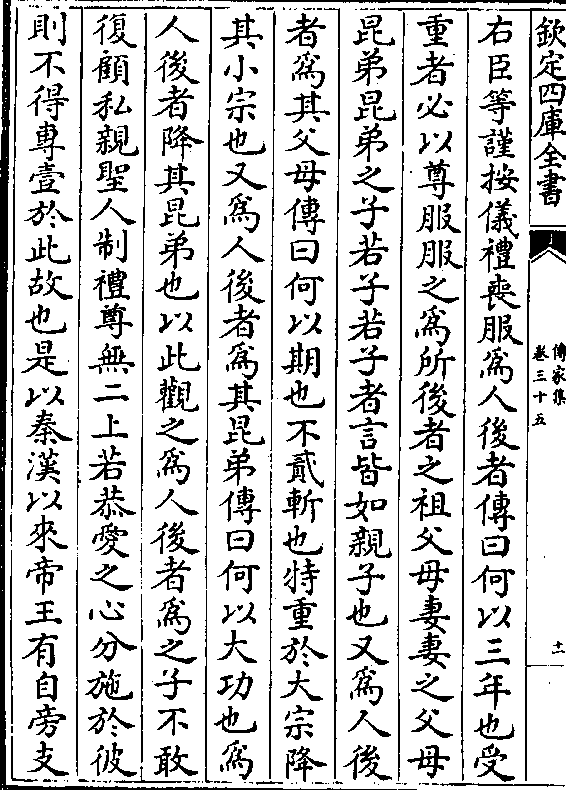 欽定四庫全書
傳家集
卷三十五
十一
右臣等謹按儀禮喪服為人後者傳曰何以三年也受
重者必以尊服服之為所後者之祖父母妻妻之父母
昆弟昆弟之子若子若子者言皆如親子也又為人後
者為其父母傳曰何以期也不貳斬也特重於大宗降
其小宗也又為人後者為其昆弟傳曰何以大功也為
人後者降其昆弟也以此觀之為人後者為之子不敢
復顧私親聖人制禮尊無二上若恭愛之心分施於彼
則不得專壹於此故也是以秦漢以來帝王有自旁支